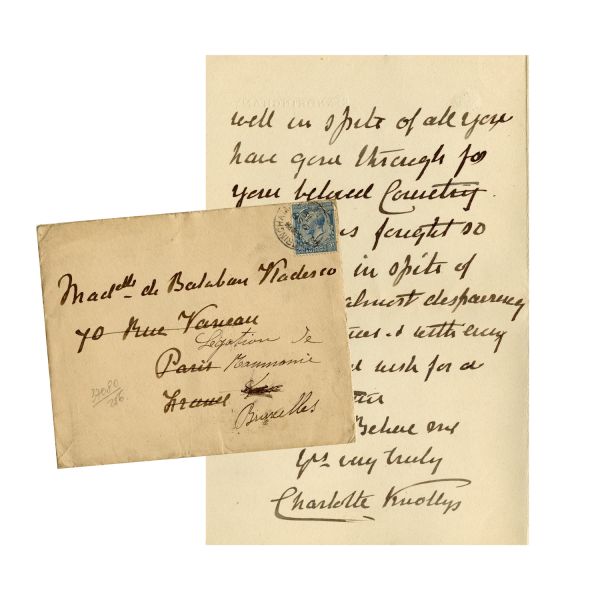 SANDRINGHAM
well in spite of all you
have gone through for
your beloved Country
fought so
in spite of
almost despairing
with my
wish for a
Believe me
Yrs. very truly
Charlotte Knollys
Madlle de Balaban Vladesco
70 Rue Vaneau
Légation de
Paris Roumanie
France
Bruxelles